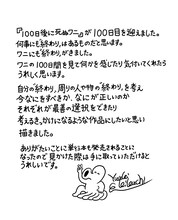 『100日後に死ぬワニ』が100日目を迎えました。
何事にも「終わり」はあるものだと思います。
ワニにも"終わり"がきました。
ワニの100日間を見て何かを感じたり気付いてくれたら
うれしく思います。
自分の"終わり"、周りの人や物の"終わり"を考え
今なにをすべきか、なにが正しいのか
それぞれが最善の選択をできたり
考えるきっかけになるような作品にしたいと思い
描きました。
ありがたいことに単行本も発売されることに
なったので見かけた際は手に取っていただけると
うれしいです。